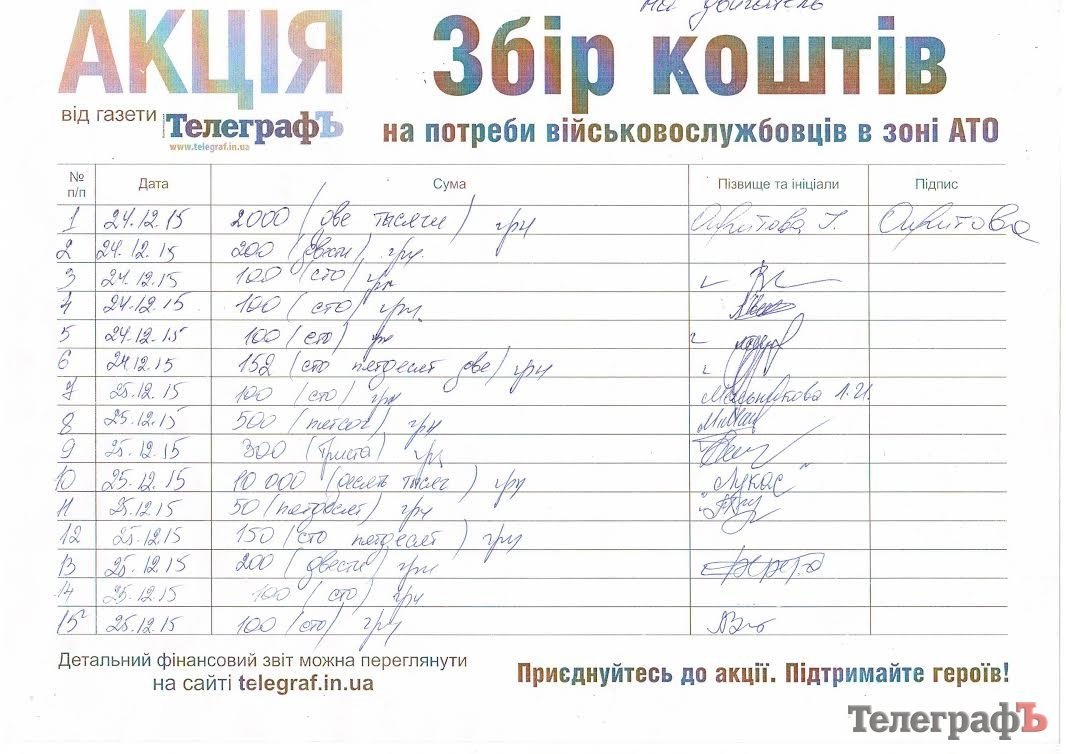 на двигатель
АКЦІЯ
Збір коштів
від газети ТелеграфЪ
www.telegraf.in.ua
на потреби військовослужбовців в зоні АТО
№ п/п Дата Сума Пізвище та ініціали Підпис
1 24.12.15 2000 (две тысячи) грн
2 24.12.15 200 (двести) грн.
3 24.12.15 100 (сто) грн
4 24.12.15 100 (сто) грн.
5 24.12.15 100 (сто) грн
6 24.12.15 152 (сто пятдесят две) грн
7 25.12.15 100 (сто) грн Мельникова Л.И.
8 25.12.15 500 (пятсот) грн
9 25.12.15 300 (триста) грн
10 25.12.15 10 000 (десять тысяч) грн "Лукас"
11 25.12.15 50 (пятдесят) грн
12 25.12.15 150 (сто пятдесят) грн
13 25.12.15 200 (двести) грн
14 25.12.15 100 (сто) грн
15 25.12.15 100 (сто) грн
Детальний фінансовий звіт можна переглянути
на сайті telegraf.in.ua
Приєднуйтесь до акції. Підтримайте героїв!
ТелеграфЪ